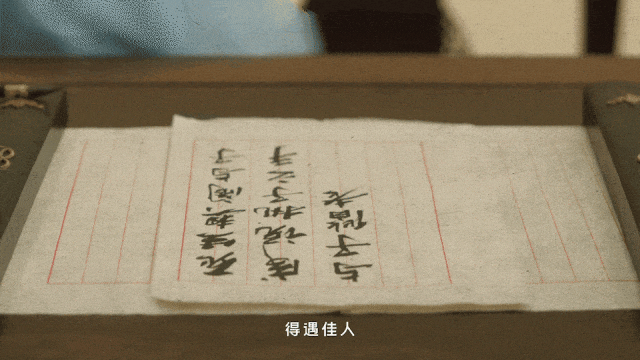 死生契阔与子
成说执子之手
与子偕老
得遇佳人